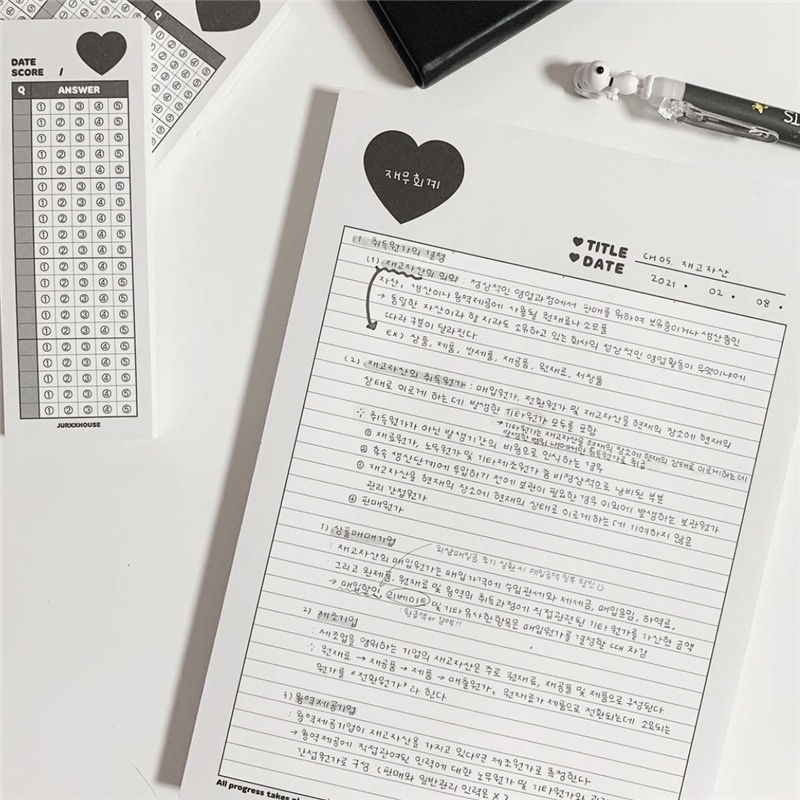 DATE
SCORE /
Q ANSWER
① ② ③ ④ ⑤
① ② ③ ④ ⑤
① ② ③ ④ ⑤
① ② ③ ④ ⑤
① ② ③ ④ ⑤
① ② ③ ④ ⑤
① ② ③ ④ ⑤
① ② ③ ④ ⑤
① ② ③ ④ ⑤
① ② ③ ④ ⑤
① ② ③ ④ ⑤
① ② ③ ④ ⑤
① ② ③ ④ ⑤
① ② ③ ④ ⑤
① ② ③ ④ ⑤
① ② ③ ④ ⑤
① ② ③ ④ ⑤
① ② ③ ④ ⑤
① ② ③ ④ ⑤
① ② ③ ④ ⑤
JURXXHOUSE
재무회계
TITLE CH 05. 재고자산
DATE 2021 • 02 • 08 •
1 취득원가의 결정
(1) 재고자산의 의의 : 정상적인 영업과정에서 판매를 위하여 보유중이거나 생산중인
자산, 생산이나 용역제공에 사용될 원재료나 소모품
→ 동일한 자산이라 할지라도 소유하고 있는 회사의 정상적인 영업활동이 무엇이냐에
따라 구분이 달라진다
ex) 상품, 제품, 반제품, 재공품, 원재료, 저장품
(2) 재고자산의 취득원가 : 매입원가, 전환원가 및 재고자산을 현재의 장소에 현재의
상태로 이르게 하는데 발생한 기타원가 모두를 포함
→ 기타원가는 재고자산을 현재의 장소에 현재의 상태로 이르게하는데
발생한 범위 내에서만 취득원가로 취급
∵ 취득원가가 아닌 발생기간의 비용으로 인식하는 경우
① 재료원가, 노무원가 및 기타제조원가 중 비정상적으로 낭비된 부분
② 후속 생산단계에 투입하기 전에 보관이 필요한 경우 이외에 발생하는 보관원가
③ 재고자산을 현재의 장소에 현재의 상태로 이르게하는데 기여하지 않은
관리 간접원가
④ 판매원가
1) 상품매매기업
: 재고자산의 매입원가는 매입가격에 수입관세와 제세금, 매입운임, 하역료,
외상매입금 조기 상환 시 매입금액 일부 할인
그리고 완제품, 원재료 및 용역의 취득과정에 직접관련된 기타원가를 가산한 금액
→ 매입할인, 리베이트 및 기타유사한항목은 매입원가를 결정할 때 차감
2) 제조기업
: 제조업을 영위하는 기업의 재고자산은 주로 원재료, 재공품 및 제품으로 구성된다
∵ 원재료 → 재공품 → 제품 → 매출원가. 원재료가 제품으로 전환되는데 소요되는
원가를 "전환원가"라 한다
3) 용역제공기업
: 용역제공기업이 재고자산을 가지고 있다면 제조원가로 측정한다
→ 용역제공에 직접관여된 인력에 대한 노무원가 및 기타원가와
간접원가로 구성 (판매와 일반관리 인력은 X)
All progress takes